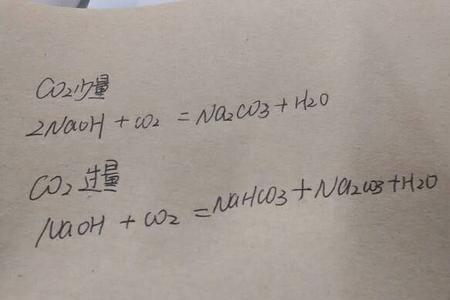 CO2少量
2NaOH + CO2 = Na2CO3 + H2O
CO2过量
NaOH + CO2 = NaHCO3 + Na2CO3 + H2O